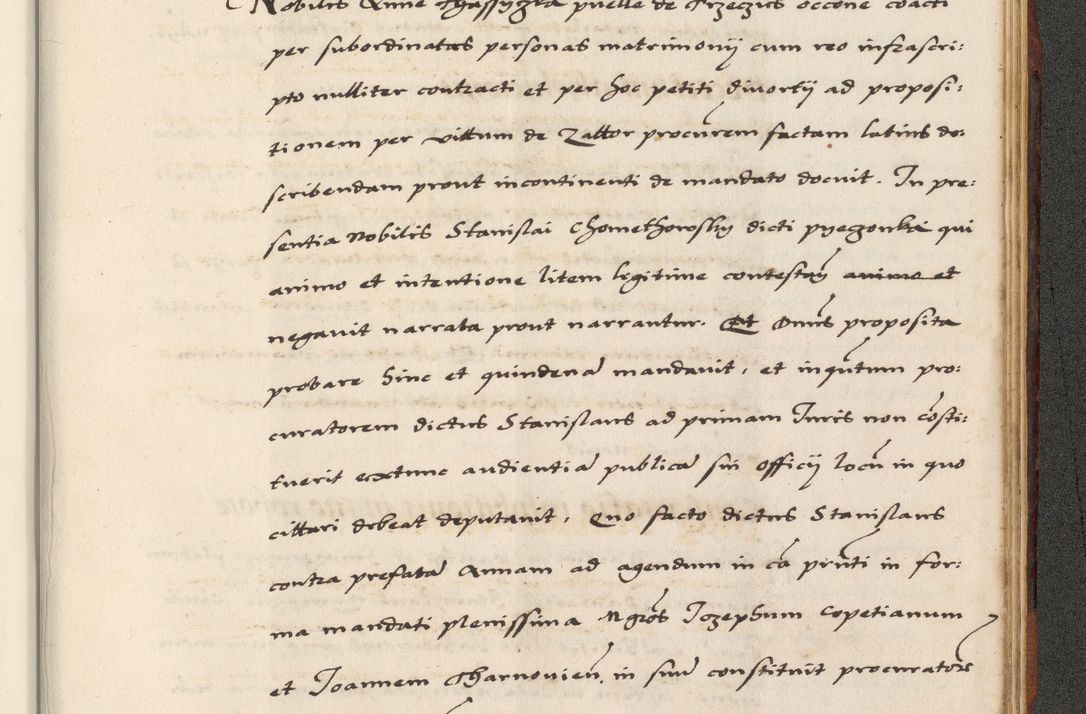 Nobilis Anne puelle de occone coacti
per subordinatas personas matrimonij cum reo infrascri:
pto nulliter contracti et per hoc petiti diuortij ad proposi:
tionem per de Zator procurem factam latius de:
scribendam prout incontinenti de mandato docuit. In pre:
sentia Nobilis Stanislai Chomethowsky dicti pyeczonka qui
animo et intentione litem legitime contestan animo et
negauit narrata prout narrantur. Et Dnus proposita
probare hinc et quindena mandauit, et inqutum pro:
curatorem dictus Stanislaus ad primam Iuris non costi:
tuerit extunc audientia publica sui officij locu in quo
cittari debeat deputauit. Quo facto dictus Stanislaus
contra prefata Annam ad agendum in ca prnti in for:
ma mandati plenissima Mgros Iozephum Copetianum
et Ioannem Tharnouien. in suu constituit procuratores